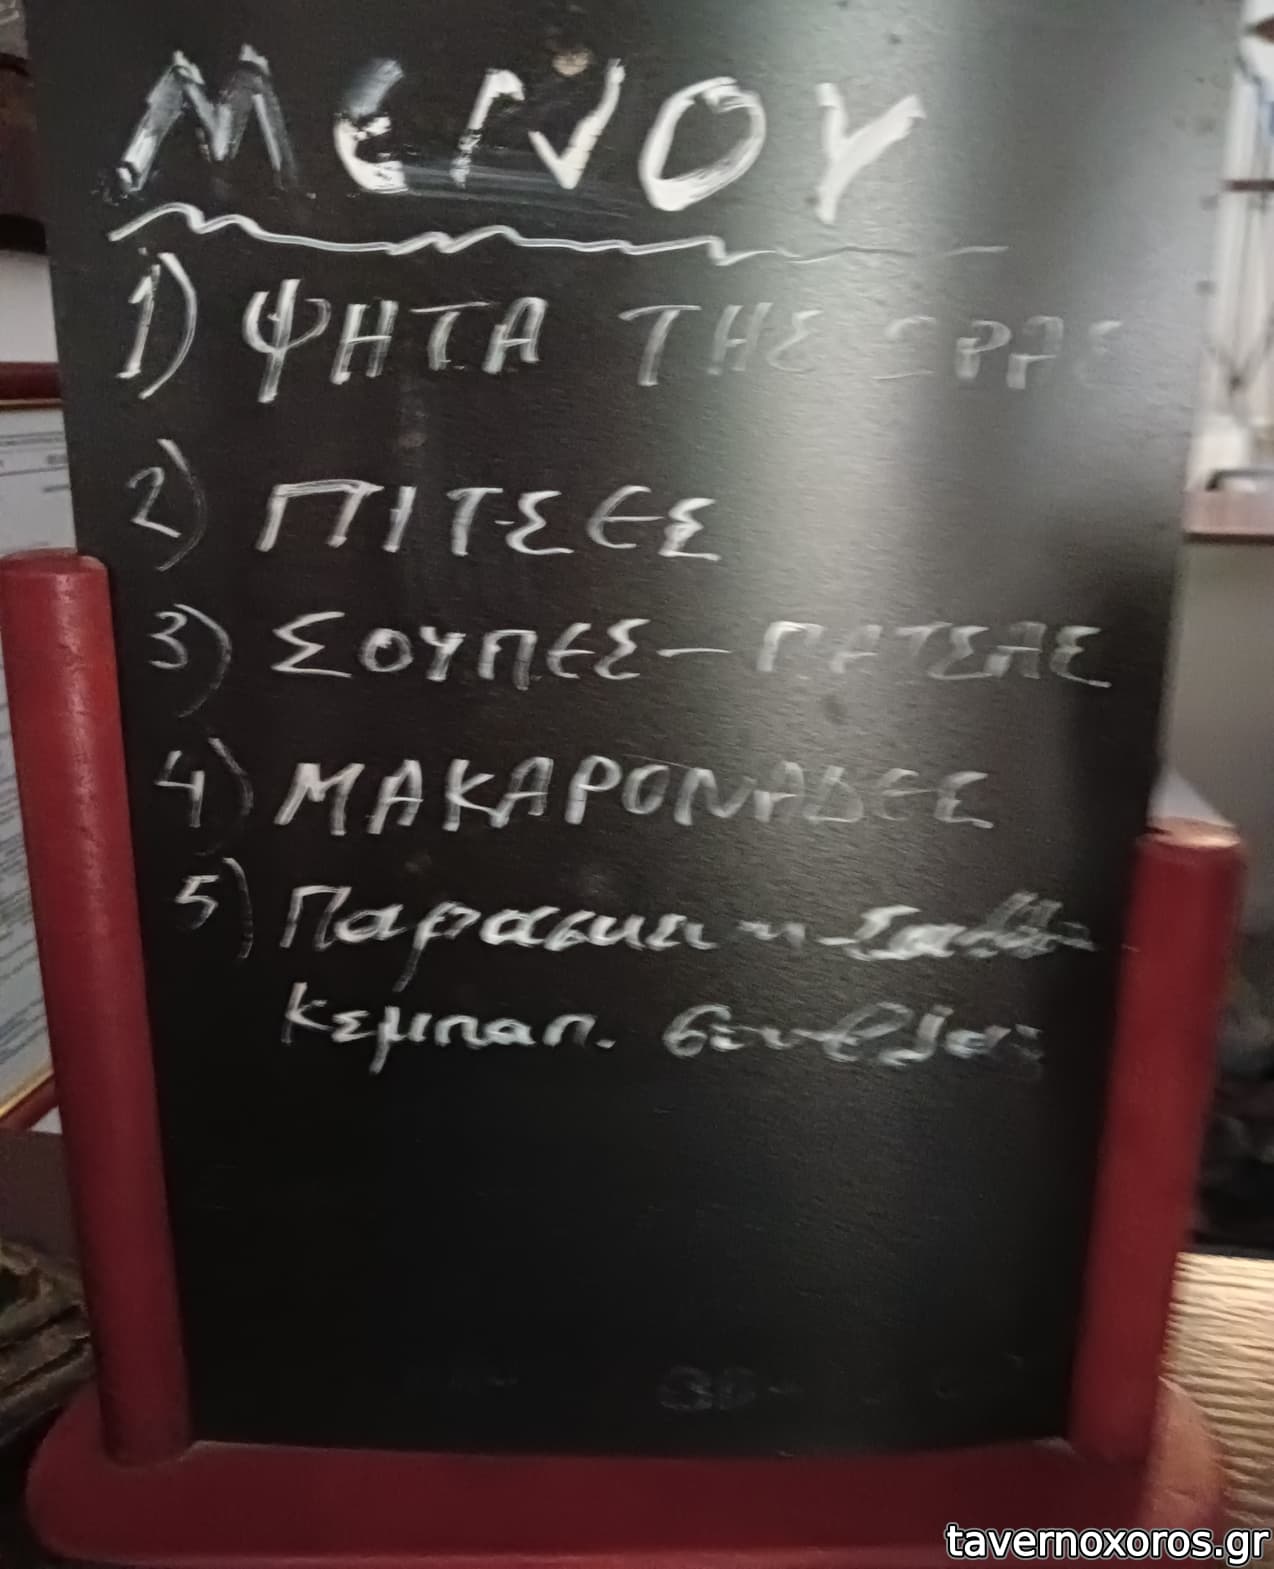 ΜΕΝΟΥ
1) ΨΗΤΑ ΤΗΣ ΩΡΑΣ
2) ΠΙΤΣΕΣ
3) ΣΟΥΠΕΣ - ΠΑΤΣΑΣ
4) ΜΑΚΑΡΟΝΑΔΕΣ
5)
Κεμπαπ.
tavernoxoros.gr